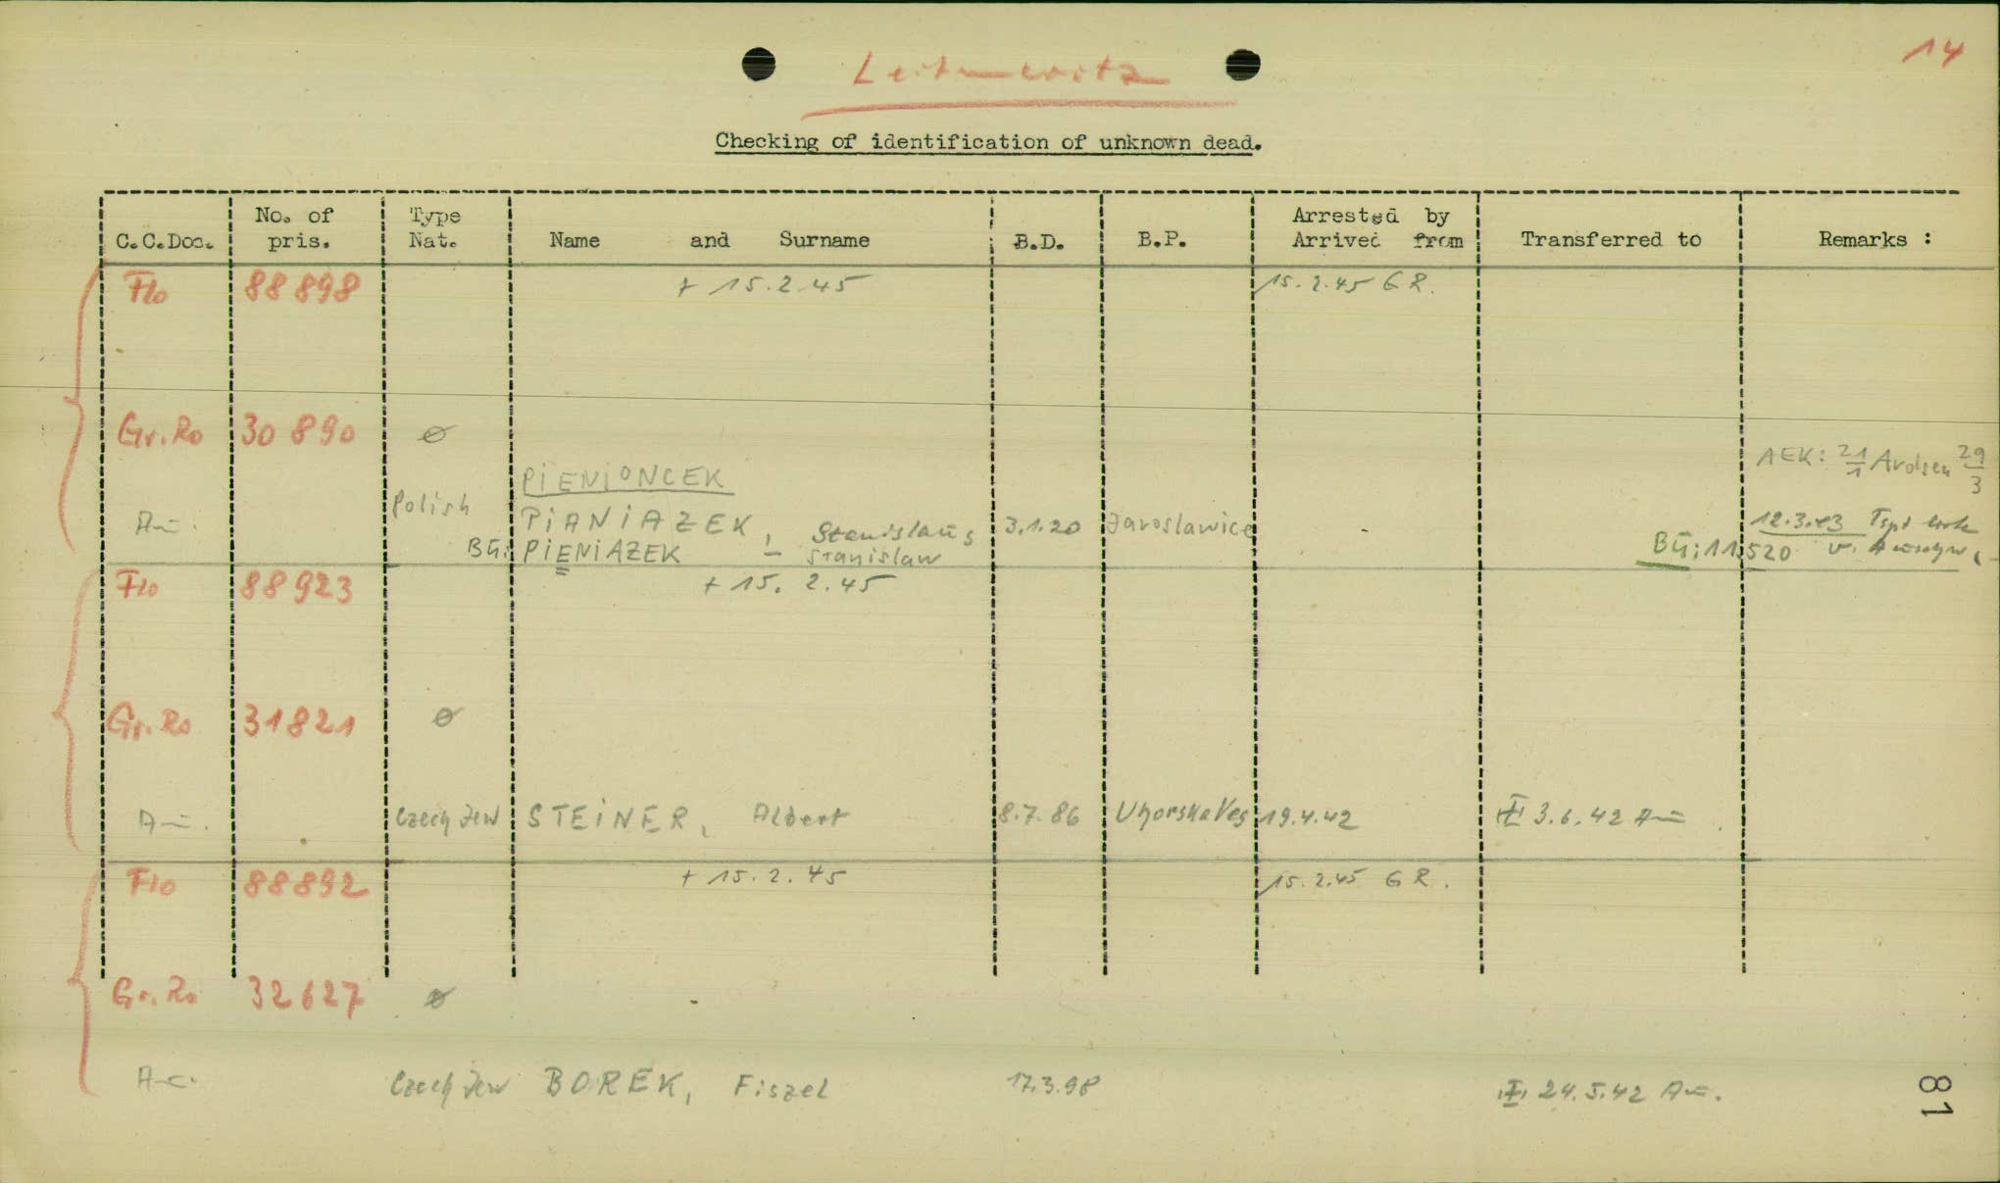 14
Leitmeritz
Checking of identification of unknown dead.
C.C.Doc. No. of pris. Type Nat. Name and Surname B.D. B.P. Arrested by Arrived from Transferred to Remarks :
Flo 88898 + 15.2.45 15.2.45 G R.
Gr.Ro 30 890 ø
AEK: 21/1 Arolsen 29/3
PiENiONCEK
Au. Polish PiANiAZEK, Stanislaus 3.1.20 Jaroslawice 12.3.43 Tspt
Bü: PiENiAZEK Stanislaw Bü: 11520 v.
Flo 88923 + 15. 2.45
Gr.Ro 31821 ø
Au. Czech Jew STEiNER, Albert 8.7.86 UhorskaVes 19.4.42 3.6.42 Au
Flo 88892 + 15.2.45 15.2.45 G R.
Gr.Ro 32627 ø
Au. Czech Jew BOREK, Fiszel 17.3.98 24.5.42 Au.
81